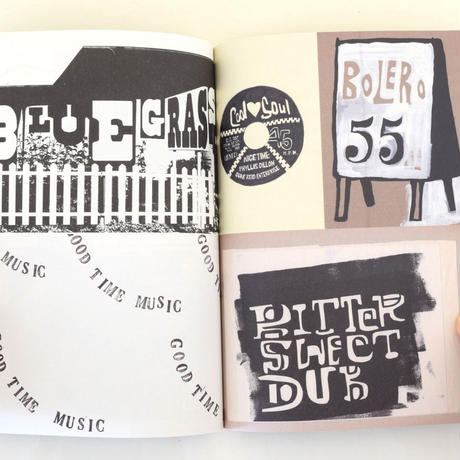 BLUEGRASS
GOOD TIME MUSIC
GOOD TIME MUSIC
GOOD
TIME
MUSIC
GOOD TIME
Cool Soul
45
R.P.M.
NICE TIME
PHYLLIS DILLON
DUKE REID ENTERPRISE
BOLERO
55
BITTER
SWEET
DUB